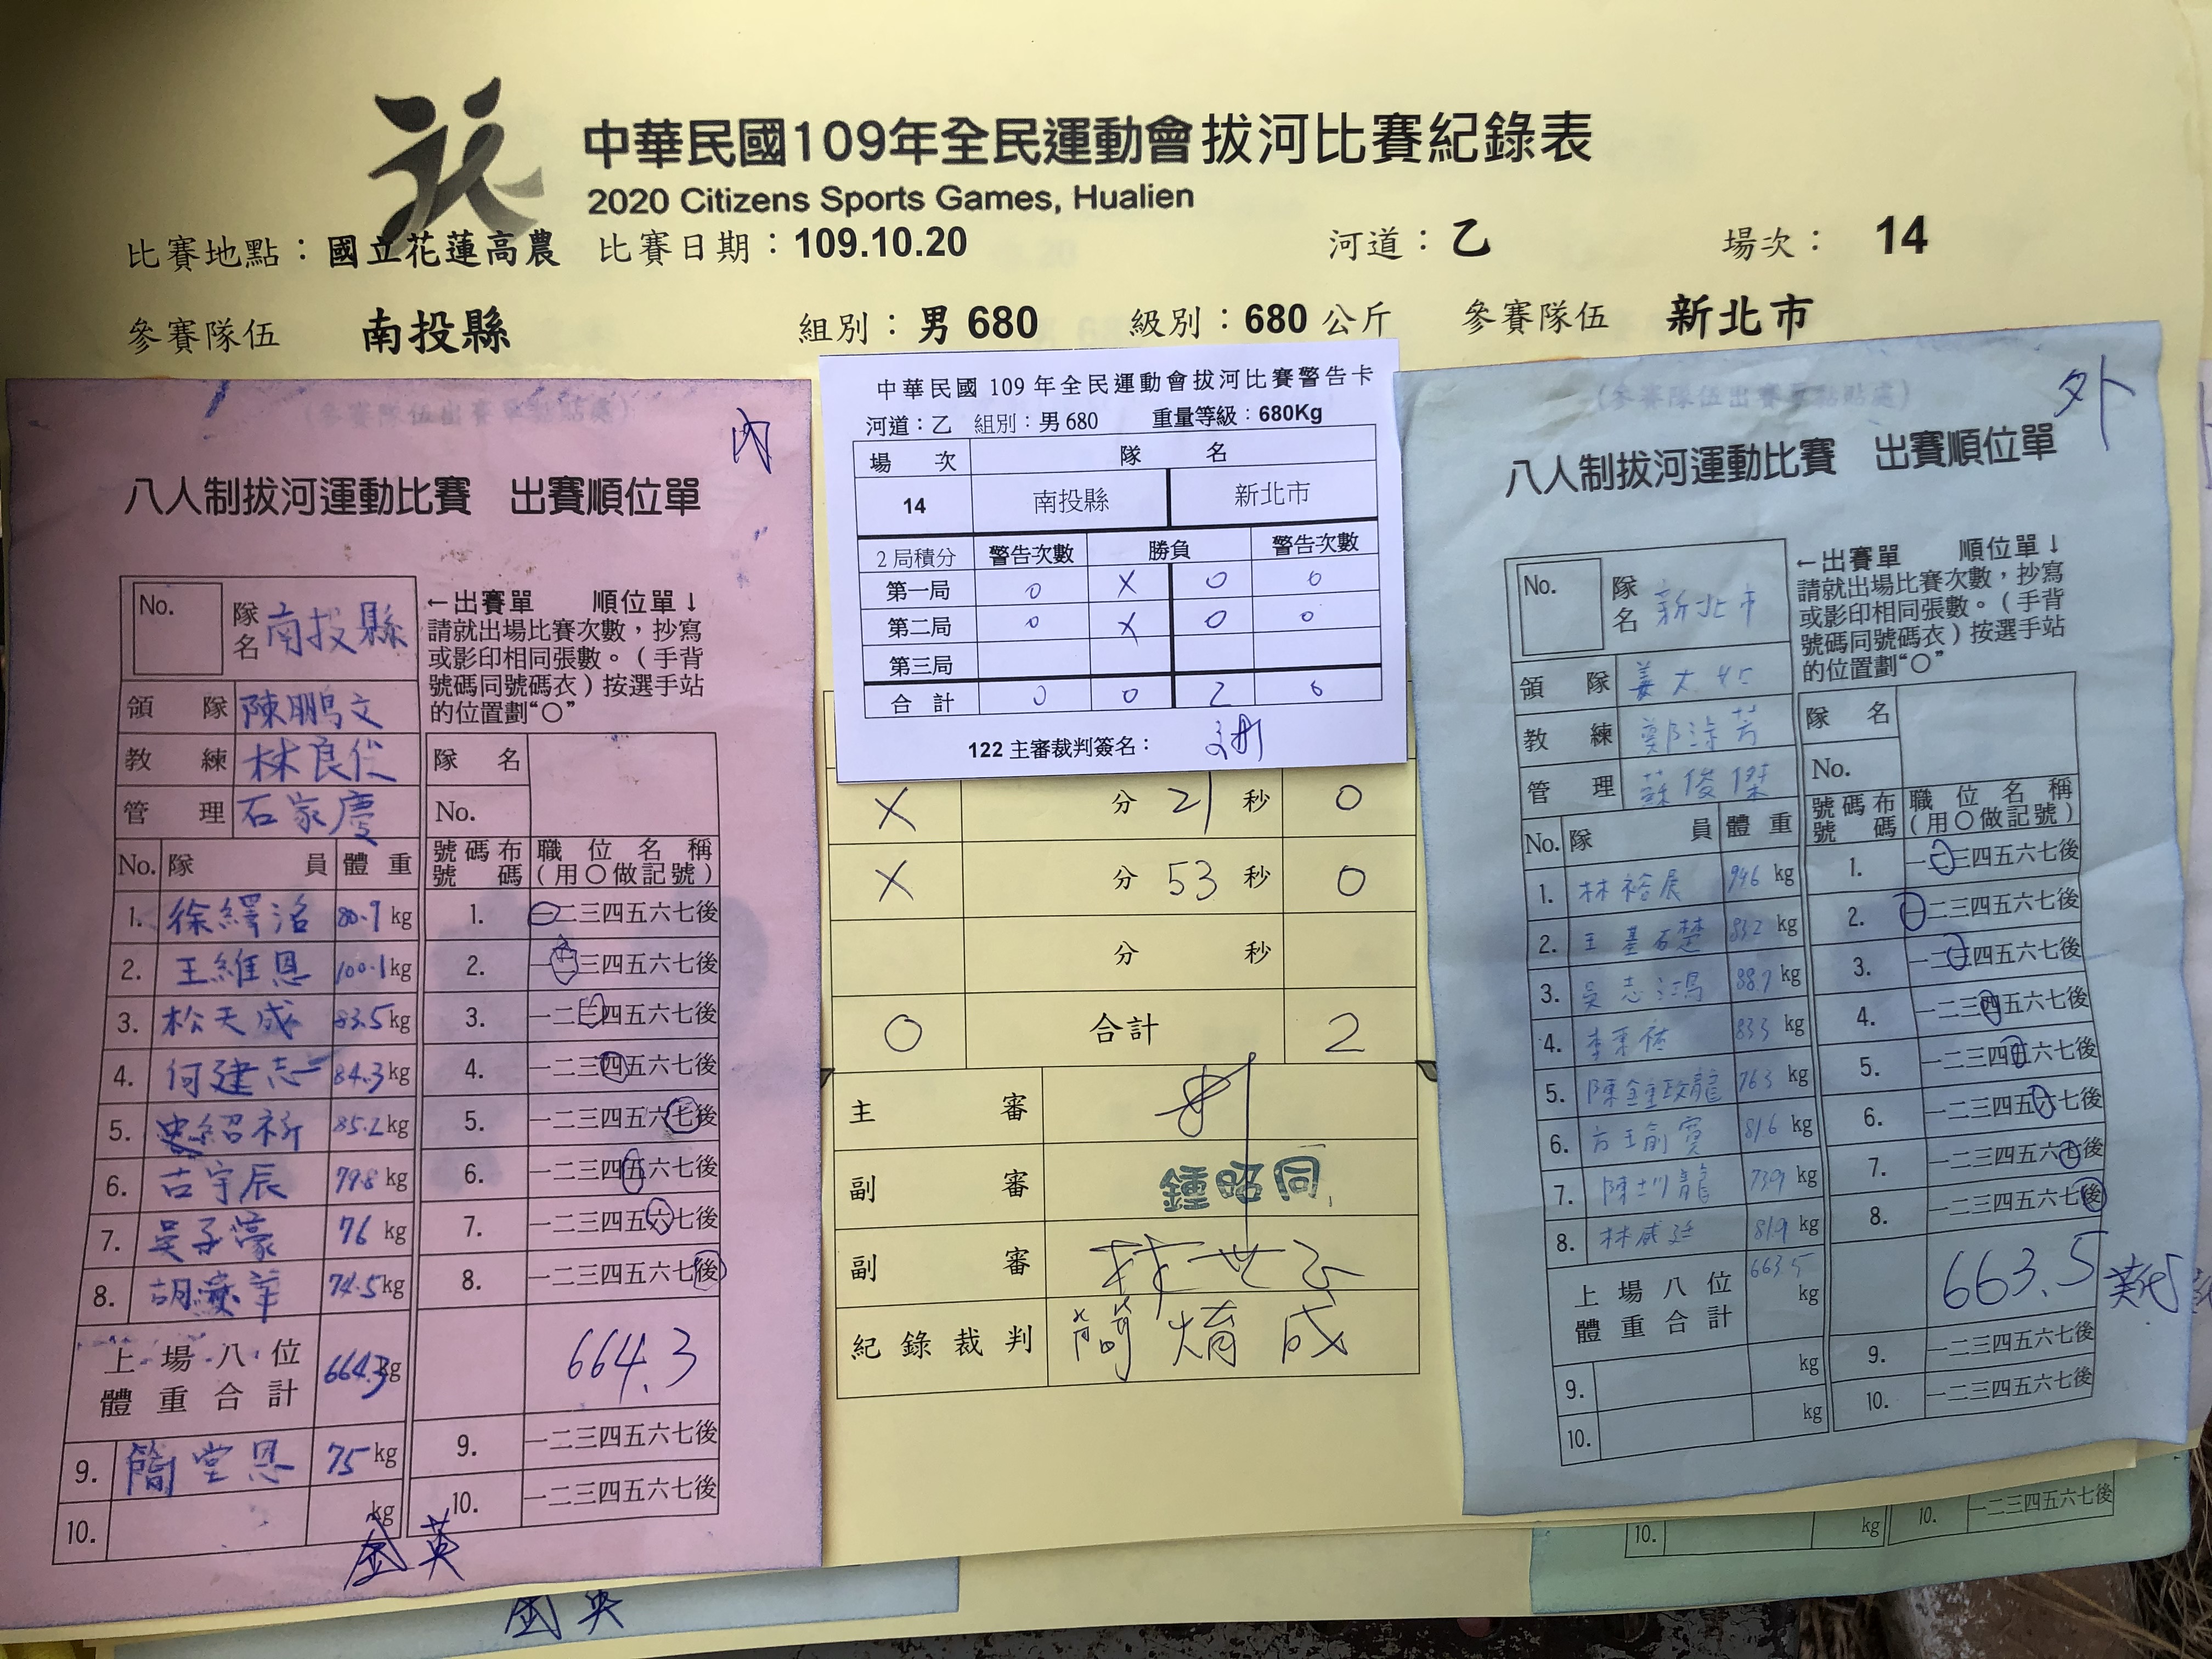 中華民國109年全民運動會拔河比賽紀錄表
2020 Citizens Sports Games, Hualien
比賽地點：國立花蓮高農 比賽日期：109.10.20 河道：乙 場次： 14
參賽隊伍 南投縣 組別：男 680 級別：680 公斤 參賽隊伍 新北市
(參賽隊伍出賽單黏貼處)
內
八人制拔河運動比賽 出賽順位單
No.
隊名 南投縣
←出賽單 順位單↓
請就出場比賽次數，抄寫
或影印相同張數。（手背
號碼同號碼衣）按選手站
的位置劃“○”
領隊 陳鵬文
教練 林良
管理 石家慶
隊名
No.
No. 隊員 體重 號碼布號碼 職位名稱(用○做記號)
1. 徐繹洺 80.9 kg 1. 一二三四五六七後
2. 王維恩 100.1 kg 2. 一二三四五六七後
3. 松天成 83.5 kg 3. 一二三四五六七後
4. 何建志 84.3 kg 4. 一二三四五六七後
5. 史紹祈 85.2 kg 5. 一二三四五六七後
6. 古宇辰 79.8 kg 6. 一二三四五六七後
7. 吳子濠 76 kg 7. 一二三四五六七後
8. 胡 74.5 kg 8. 一二三四五六七後
上場八位體重合計 664.3 kg 664.3
9. 簡堂恩 75 kg 9. 一二三四五六七後
10. kg 10. 一二三四五六七後
金英
金英
中華民國 109 年全民運動會拔河比賽警告卡
河道：乙 組別：男 680 重量等級：680Kg
場次 隊名
14 南投縣 新北市
2 局積分 警告次數 勝負 警告次數
第一局 0 X 0 0
第二局 0 X 0 0
第三局
合計 0 0 2 0
122 主審裁判簽名：
X 分 21 秒 0
X 分 53 秒 0
分 秒
0 合計 2
主審
副審 鍾昭同
副審
紀錄裁判 簡焴成
(參賽隊伍出賽單黏貼處)
外
八人制拔河運動比賽 出賽順位單
No.
隊名 新北市
←出賽單 順位單↓
請就出場比賽次數，抄寫
或影印相同張數。（手背
號碼同號碼衣）按選手站
的位置劃“○”
領隊 姜
教練 鄭 芳
管理 蘇俊傑
隊名
No.
No. 隊員 體重 號碼布號碼 職位名稱(用○做記號)
1. 林裕展 94.6 kg 1. 一二三四五六七後
2. 王基 83.2 kg 2. 一二三四五六七後
3. 吳志鴻 88.7 kg 3. 一二三四五六七後
4. 李 祐 83.3 kg 4. 一二三四五六七後
5. 陳 龍 76.3 kg 5. 一二三四五六七後
6. 方 81.6 kg 6. 一二三四五六七後
7. 陳 龍 73.9 kg 7. 一二三四五六七後
8. 林威廷 81.9 kg 8. 一二三四五六七後
上場八位體重合計 663.5 kg 663.5
9. kg 9. 一二三四五六七後
10. kg 10. 一二三四五六七後
10. kg 10. 一二三四五六七後